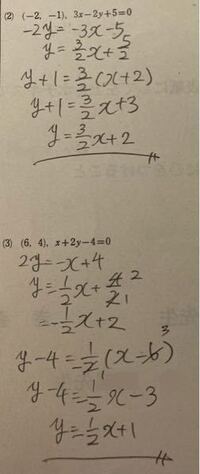 (2) (-2, -1), 3x-2y+5=0
-2y=-3x-5
y=3/2x+5/2
y+1=3/2(x+2)
y+1=3/2x+3
y=3/2x+2
(3) (6, 4), x+2y-4=0
2y=-x+4
y=-1/2x+4/2 2 1
=-1/2x+2
y-4=-1/2(x-6) 3
y-4=-1/2x-3
y=-1/2x+1